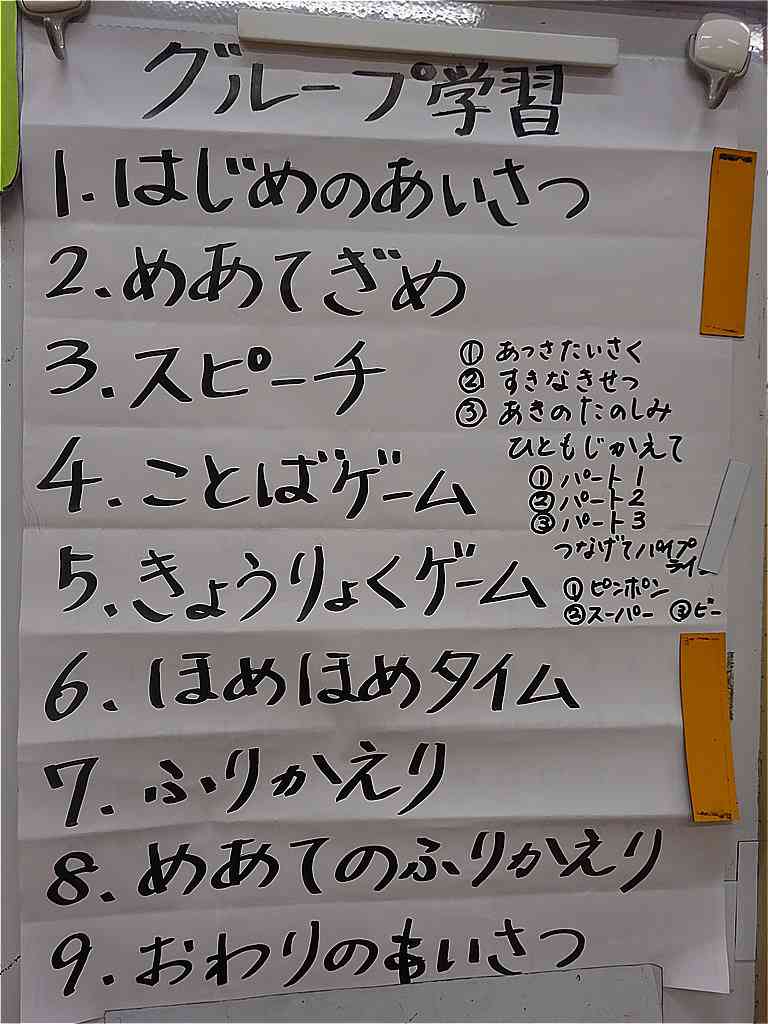 グループ学習
1. はじめのあいさつ
2. めあてぎめ
3. スピーチ
① あっさたいさく
② すきなきせつ
③ あきのたのしみ
4. ことばゲーム
ひともじかえて
① パート1
② パート2
③ パート3
5. きょうりょくゲーム
つなげてパイプ
ライン
① ピンポン
② スーパー ③ビー
6. ほめほめタイム
7. ふりかえり
8. めあてのふりかえり
9. おわりのあいさつ